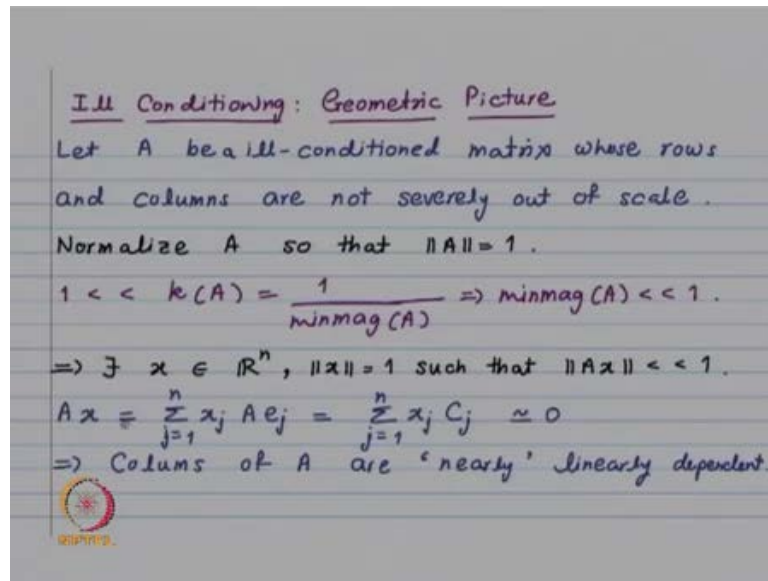 Ill Conditioning: Geometric Picture
Let A be a ill-conditioned matrix whose rows
and columns are not severely out of scale.
Normalize A so that ||A|| = 1.
1 < < k(A) = 1 / minmag(A) => minmag(A) < < 1.
=> ∃ x ∈ ℝⁿ, ||x|| = 1 such that ||Ax|| < < 1.
Ax = ∑_{j=1}^{n} x_j A e_j = ∑_{j=1}^{n} x_j C_j ≃ 0
=> Colums of A are 'nearly' linearly dependent.
NPTEL